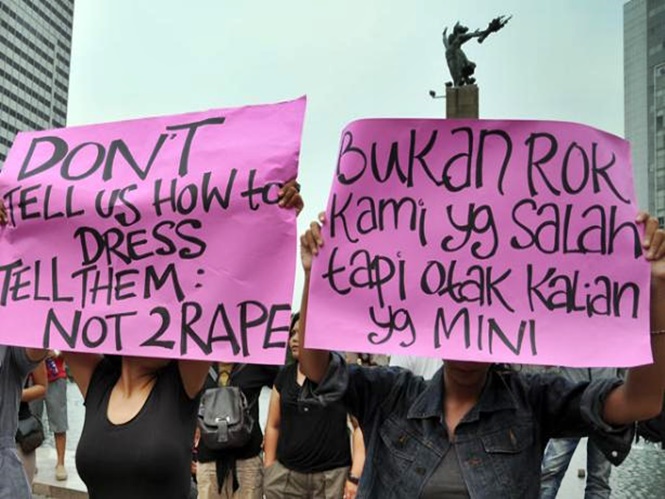 DON'T
TELL US HOW to
DRESS
TELL THEM :
NOT 2 RAPE
BUKAN ROK
KAMi yg SALAH
tapi OtAK KALiAN
yg MINI